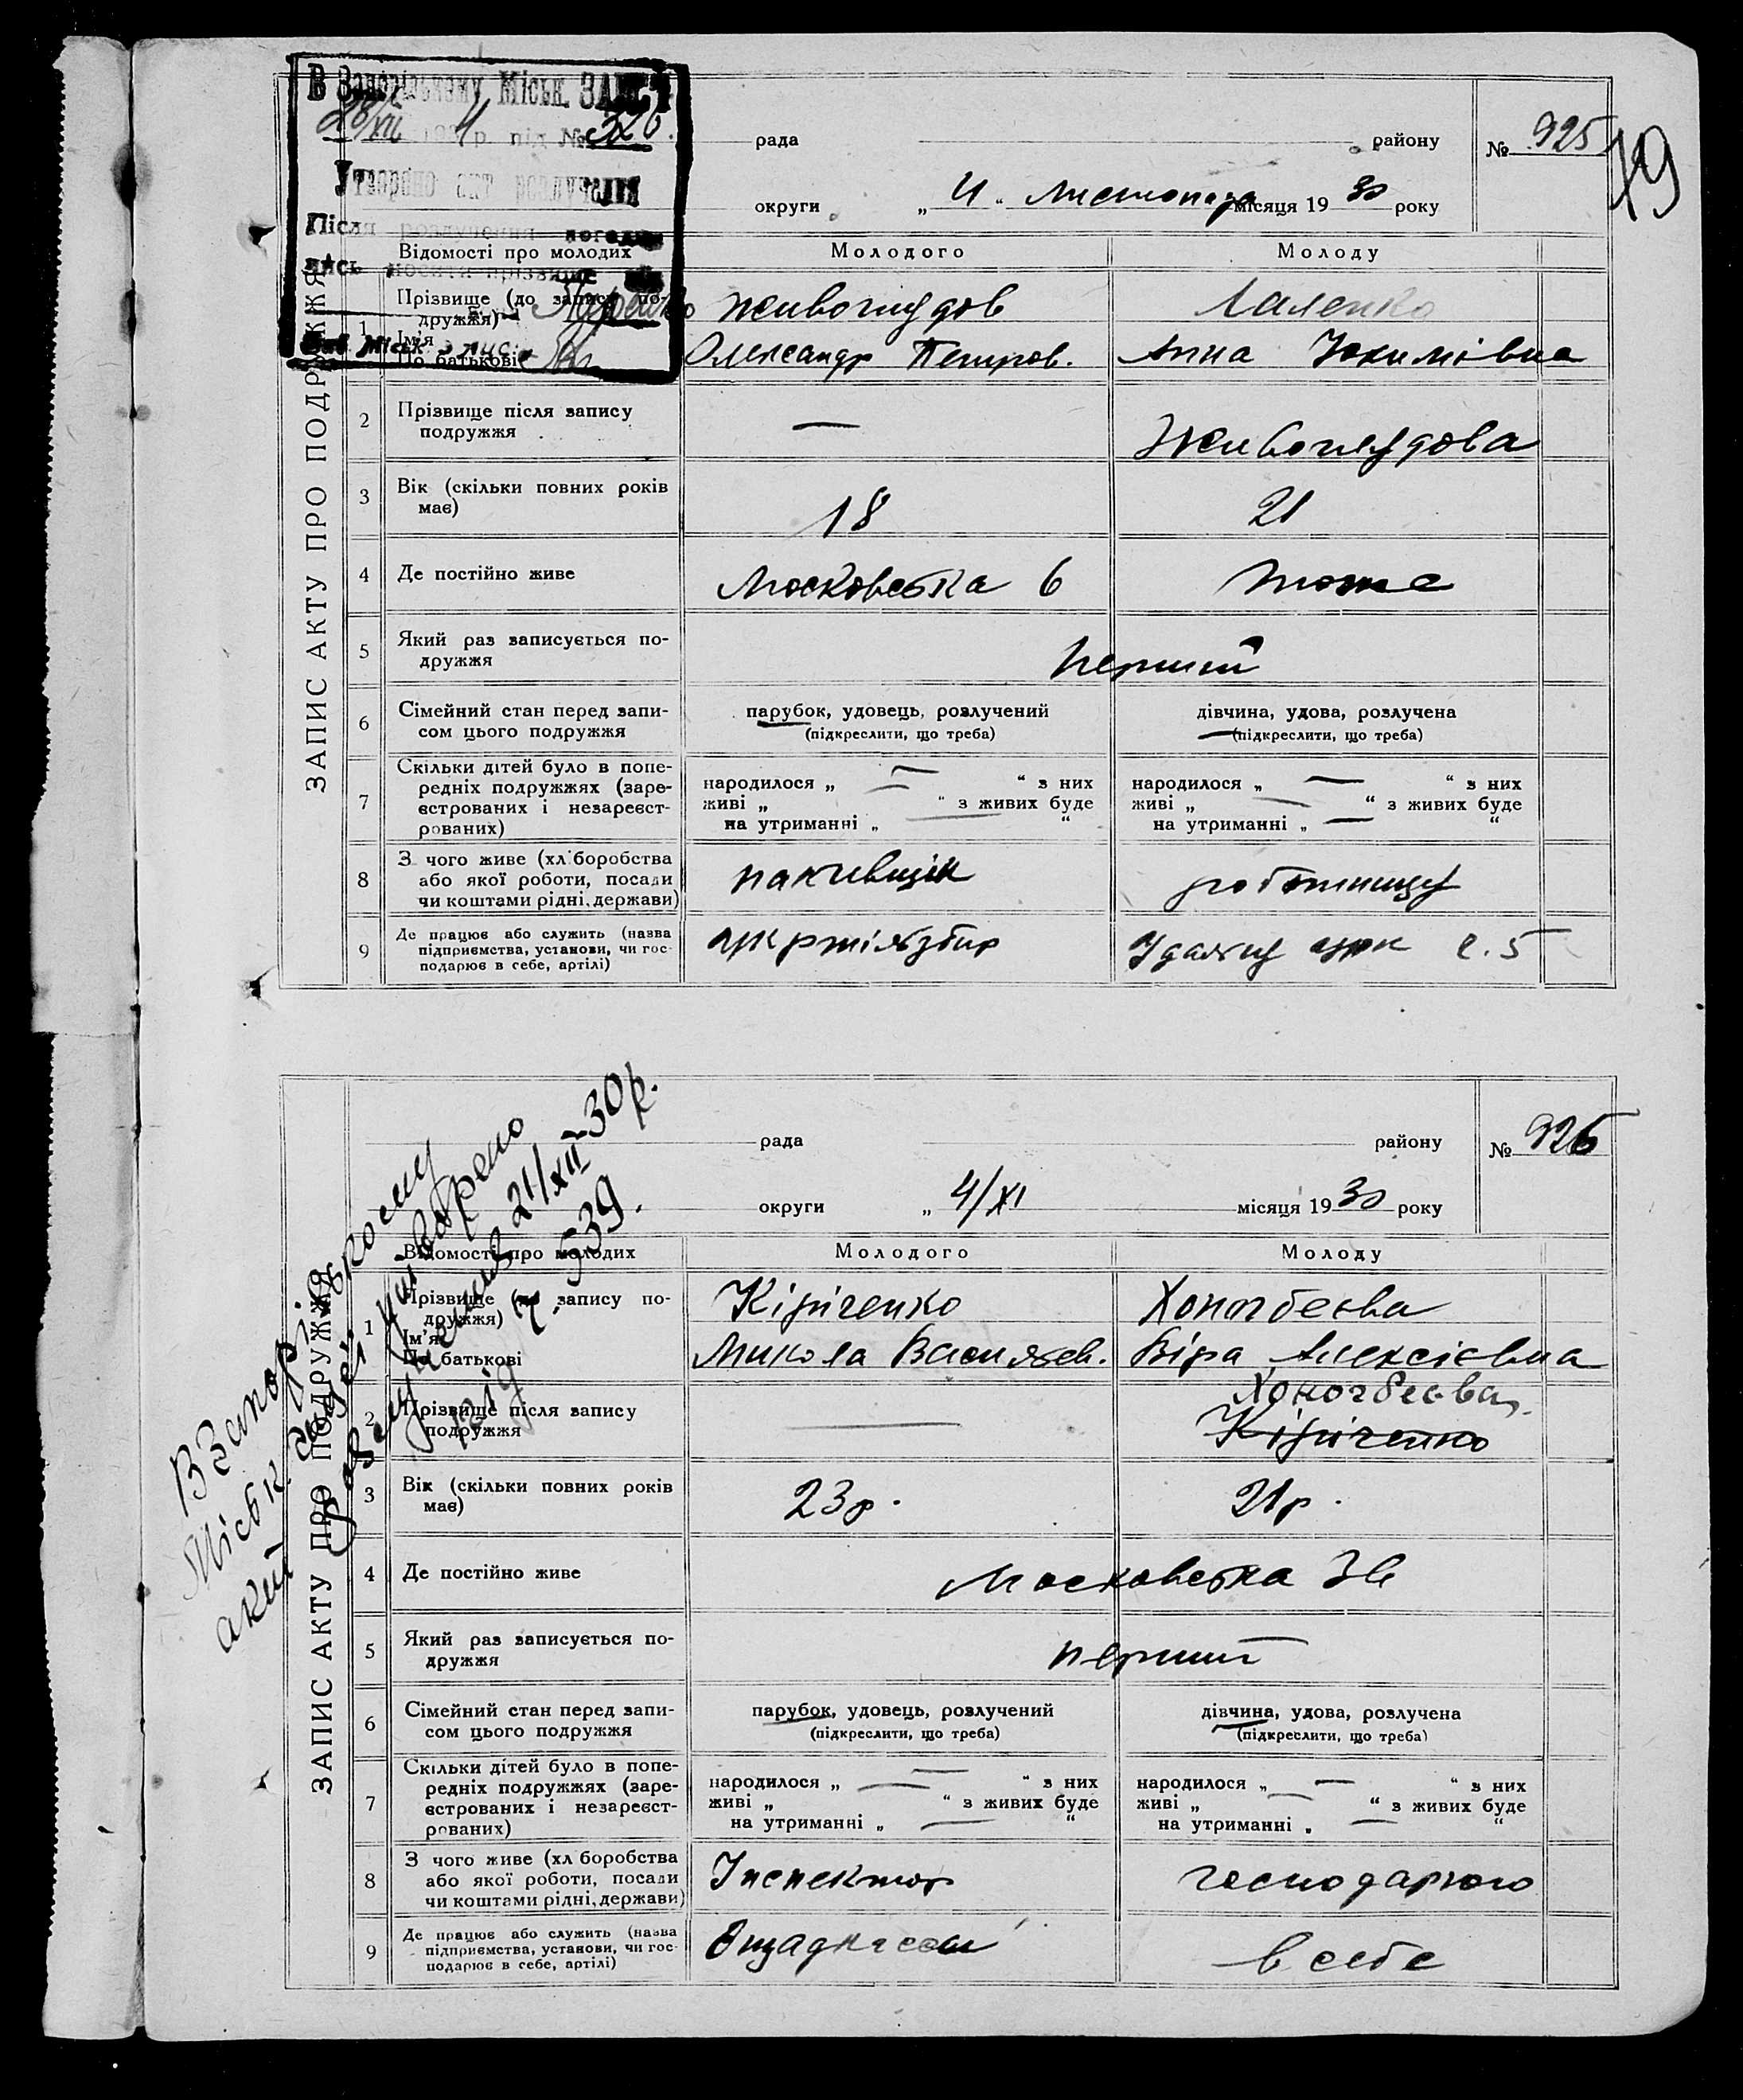 В Запорізькому Міськ. ЗАГСІ
28/XII р. під № 326.
Утворено акт розлучення
Після розлучення погоди-
лись носити прізвище
рада району № 925
49
округи „ 4 “ Листопада місяця 19 30 року
ЗАПИС АКТУ ПРО ПОДРУЖЖЯ
Відомості про молодих Молодого Молоду
1 Прізвище (до запису по-
дружжя)
Ім'я
По батькові
Олександр Петров. Анна Юхимівна
2 Прізвище після запису
подружжя
—
3 Вік (скільки повних років
має)
18 21
4 Де постійно живе Московська 6 тоже
5 Який раз записується по-
дружжя
перший
6 Сімейний стан перед запи-
сом цього подружжя
парубок, удовець, розлучений
(підкреслити, що треба)
дівчина, удова, розлучена
(підкреслити, що треба)
7 Скільки дітей було в попе-
редніх подружжях (заре-
єстрованих і незареєст-
рованих)
народилося „ — “ з них
живі „ — “ з живих буде
на утриманні „ — “
народилося „ — “ з них
живі „ — “ з живих буде
на утриманні „ — “
8 З чого живе (хліборобства
або якої роботи, посади
чи коштами рідні, держави)
9 Де працює або служить (назва
підприємства, установи, чи гос-
подарює в себе, артілі)
В Запорізькому
Міськ. загсі утворено
акт розлучення 21/XII-30р.
під Ч. 539.
рада району № 926
округи „ 4/XI місяця 19 30 року
ЗАПИС АКТУ ПРО ПОДРУЖЖЯ
Відомості про молодих Молодого Молоду
1 Прізвище (до запису по-
дружжя)
Ім'я
По батькові
Кіріченко Хоногбеєва
Микола Васильев. Віра Алексієвна
2 Прізвище після запису
подружжя
— Хоногбеєва
Кіріченко
3 Вік (скільки повних років
має)
23р. 21р.
4 Де постійно живе Московська
5 Який раз записується по-
дружжя
перший
6 Сімейний стан перед запи-
сом цього подружжя
парубок, удовець, розлучений
(підкреслити, що треба)
дівчина, удова, розлучена
(підкреслити, що треба)
7 Скільки дітей було в попе-
редніх подружжях (заре-
єстрованих і незареєст-
рованих)
народилося „ — “ з них
живі „ “ з живих буде
на утриманні „ — “
народилося „ — “ з них
живі „ — “ з живих буде
на утриманні „ — “
8 З чого живе (хліборобства
або якої роботи, посади
чи коштами рідні, держави)
Інспектор господарного
9 Де працює або служить (назва
підприємства, установи, чи гос-
подарює в себе, артілі)
Ощадкаси в себе